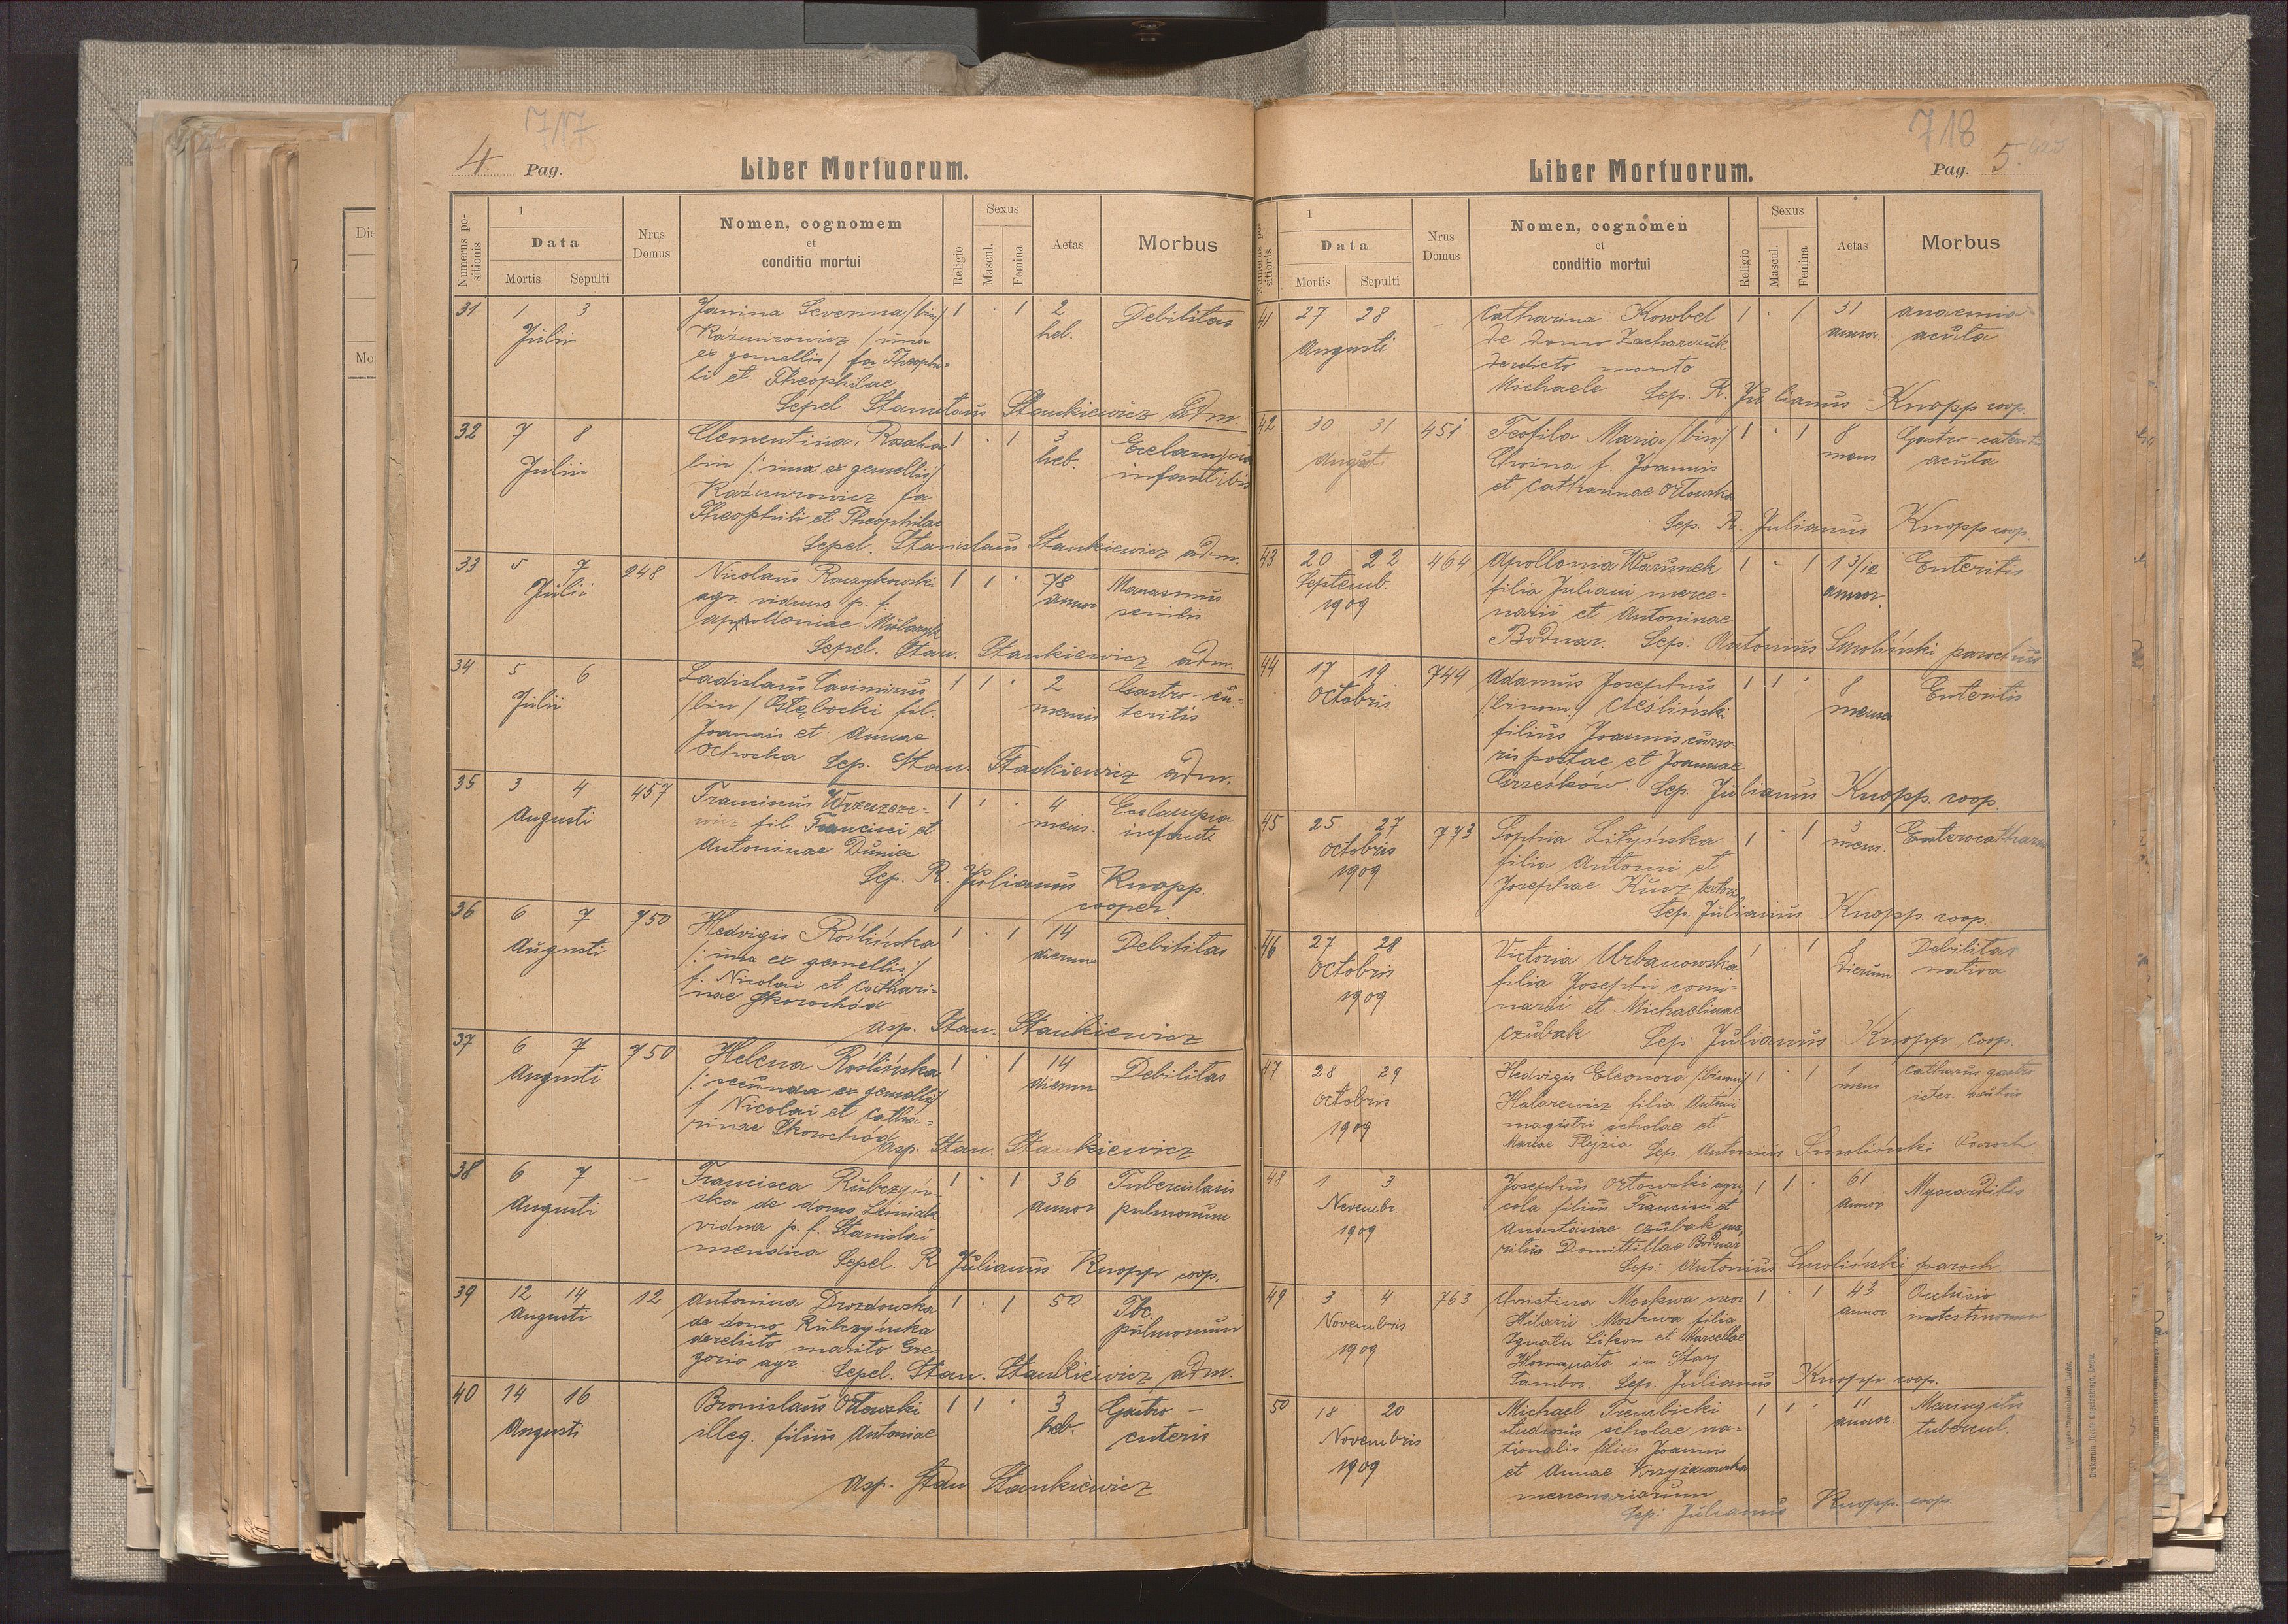 717
4. Pag.
Liber Mortuorum.
Numerus positionis
1
Data
Mortis Sepulti
Nrus Domus
Nomen, cognomem
et
conditio mortui
Religio
Sexus
Mascul. Femina
Aetas
Morbus
31 1 3 Janina Severina /bin/ 1 · 1 2 Debilitas
Julii Kaźmirowicz /una heb.
ex gemellis/ fa Theophi-
li et Theophilae
Sepel. Stanislaus Stankiewicz adm.
32 7 8 Clementina, Rosalia 1 · 1 3 Eclampsia
Julii bin /: una ex gemellis/ heb. infantibis
Kaźmirowicz fa
Theophili et Theophilae
Sepel. Stanislaus Stankiewicz adm.
33 5 7 248 Nicolaus Raczykowski 1 1 · 78 Marasmus
Julii agr. viduus p. f. annor senilis
appolloniae Mularczyk
Sepel. Stan. Stankiewicz adm.
34 5 6 Ladislaus Casimirus 1 1 · 2 Gastro-en-
Julii /bin/ Głębocki fil. mensis teritis
Joannis et Annae
Ochocka Sep. Stan. Stankiewicz adm.
35 3 4 457 Franciscus 1 1 · 4 Eclampia
Augusti wicz fil. Francisci et mens. infanti
Antoninae Duniec
Sep. R. Julianus Knopp.
cooper.
36 6 7 750 Hedvigis Roślińska 1 · 1 14 Debilitas
Augusti /: una ex gemellis/ dierum
f. Nicolai et Cathari-
nae Skorochód
asp. Stan. Stankiewicz
37 6 7 750 Helena Roślińska 1 · 1 14 Debilitas
Augusti /: secunda ex gemellis/ dierum
f. Nicolai et Catha-
rinae Skorochód
asp. Stan. Stankiewicz
38 6 7 - Francisca Rubczyń- 1 · 1 36 Tuberculasis
Augusti ska de domo Leśniak annor pulmonum
vidua p. f. Stanislai
mendica Sepel. R Julianus Knopp coop.
39 12 14 12 Antonina Drozdowska 1 · 1 50 Tbc.
Augusti de domo Rubczyńska pulmonum
derelicto marito Gre-
gorio agr. Sepel. Stan. Stankiewicz adm.
40 14 16 Bronislaus Orłowski 1 1 · 3 Gastro-
Augusti illeg. filius Antoniae heb. enteris
asp. Stan. Stankiewicz
718
Liber Mortuorum.
Pag. 5.
Numerus positionis
1
Data
Mortis Sepulti
Nrus Domus
Nomen, cognomen
et
conditio mortui
Religio
Sexus
Mascul. Femina
Aetas
Morbus
41 27 28 - Catharina Kowbel 1 · 1 31 anaemia
Augusti de domo Zacharczuk annor. acuta
derelicto marito
Michaele Sep. R. Julianus Knopp coop.
42 30 31 451 Teofila Maria /:bin:/ 1 · 1 8 Gastro-
Augusti f. Joannis mens acuta
et Catharinae Orłowska
Sep. R. Julianus Knopp coop.
43 20 22 464 Apollonia Warunek 1 · 1 1 3/12 Enteritis
Septemb. filia Juliani merce- annor.
1909 narii et Antoninae
Bodnar. Sep: Antonius Smoliński parochus
44 17 19 744 Adamus Josephus 1 1 · 8 Enteritis
Octobris /binom:/ Cieśliński mensis
filius Joannis curso-
ris postae et Joannae
Grześków. Sep. Julianus Knopp. coop.
45 25 27 773 Sophia Lityńska 1 · 1 3 Enterocatharus
Octobris filia Antonii et mens.
1909 Josephae Kusz
Sep. Julianus Knopp. coop.
46 27 28 Victoria Urbanowska 1 · 1 8 Debilitas
Octobris filia Josephi comi- dierum nativa
1909 narii et Michaelinae
Czubak Sep: Julianus Knopp coop.
47 28 29 Hedvigis Eleonora /:binom/ 1 · 1 1 catharus gastro
Octobris Halarewicz filia Antonii mens
1909 magistri scholae et
Mariae Sep. Antonius Smoliński Paroch
48 1 3 Josephus Orłowski agri- 1 1 · 61 Myocarditis
Novembr. cola filius Francisci et annor
1909 Anastasiae Czubak ma-
ritus Domittillae Bodnar
Sep: Antonius Smoliński paroch
49 3 4 763 Christina Moskwa uxor 1 · 1 43 Occlusio
Novembris Hilarii Moskwa filia annor intestinorum
1909 Ignatii Likon et Marcellae
in Stary
Sambor. Sep. Julianus Knopp coop.
50 18 20 Michael Trembicki 1 1 · 11 Meningitis
Novembris studiosus scholae na- annor. tubercul.
1909 tionalis filius Joannis
et Annae Krzyżanowska
mercenariorum
Sep: Julianus Knopp. coop.